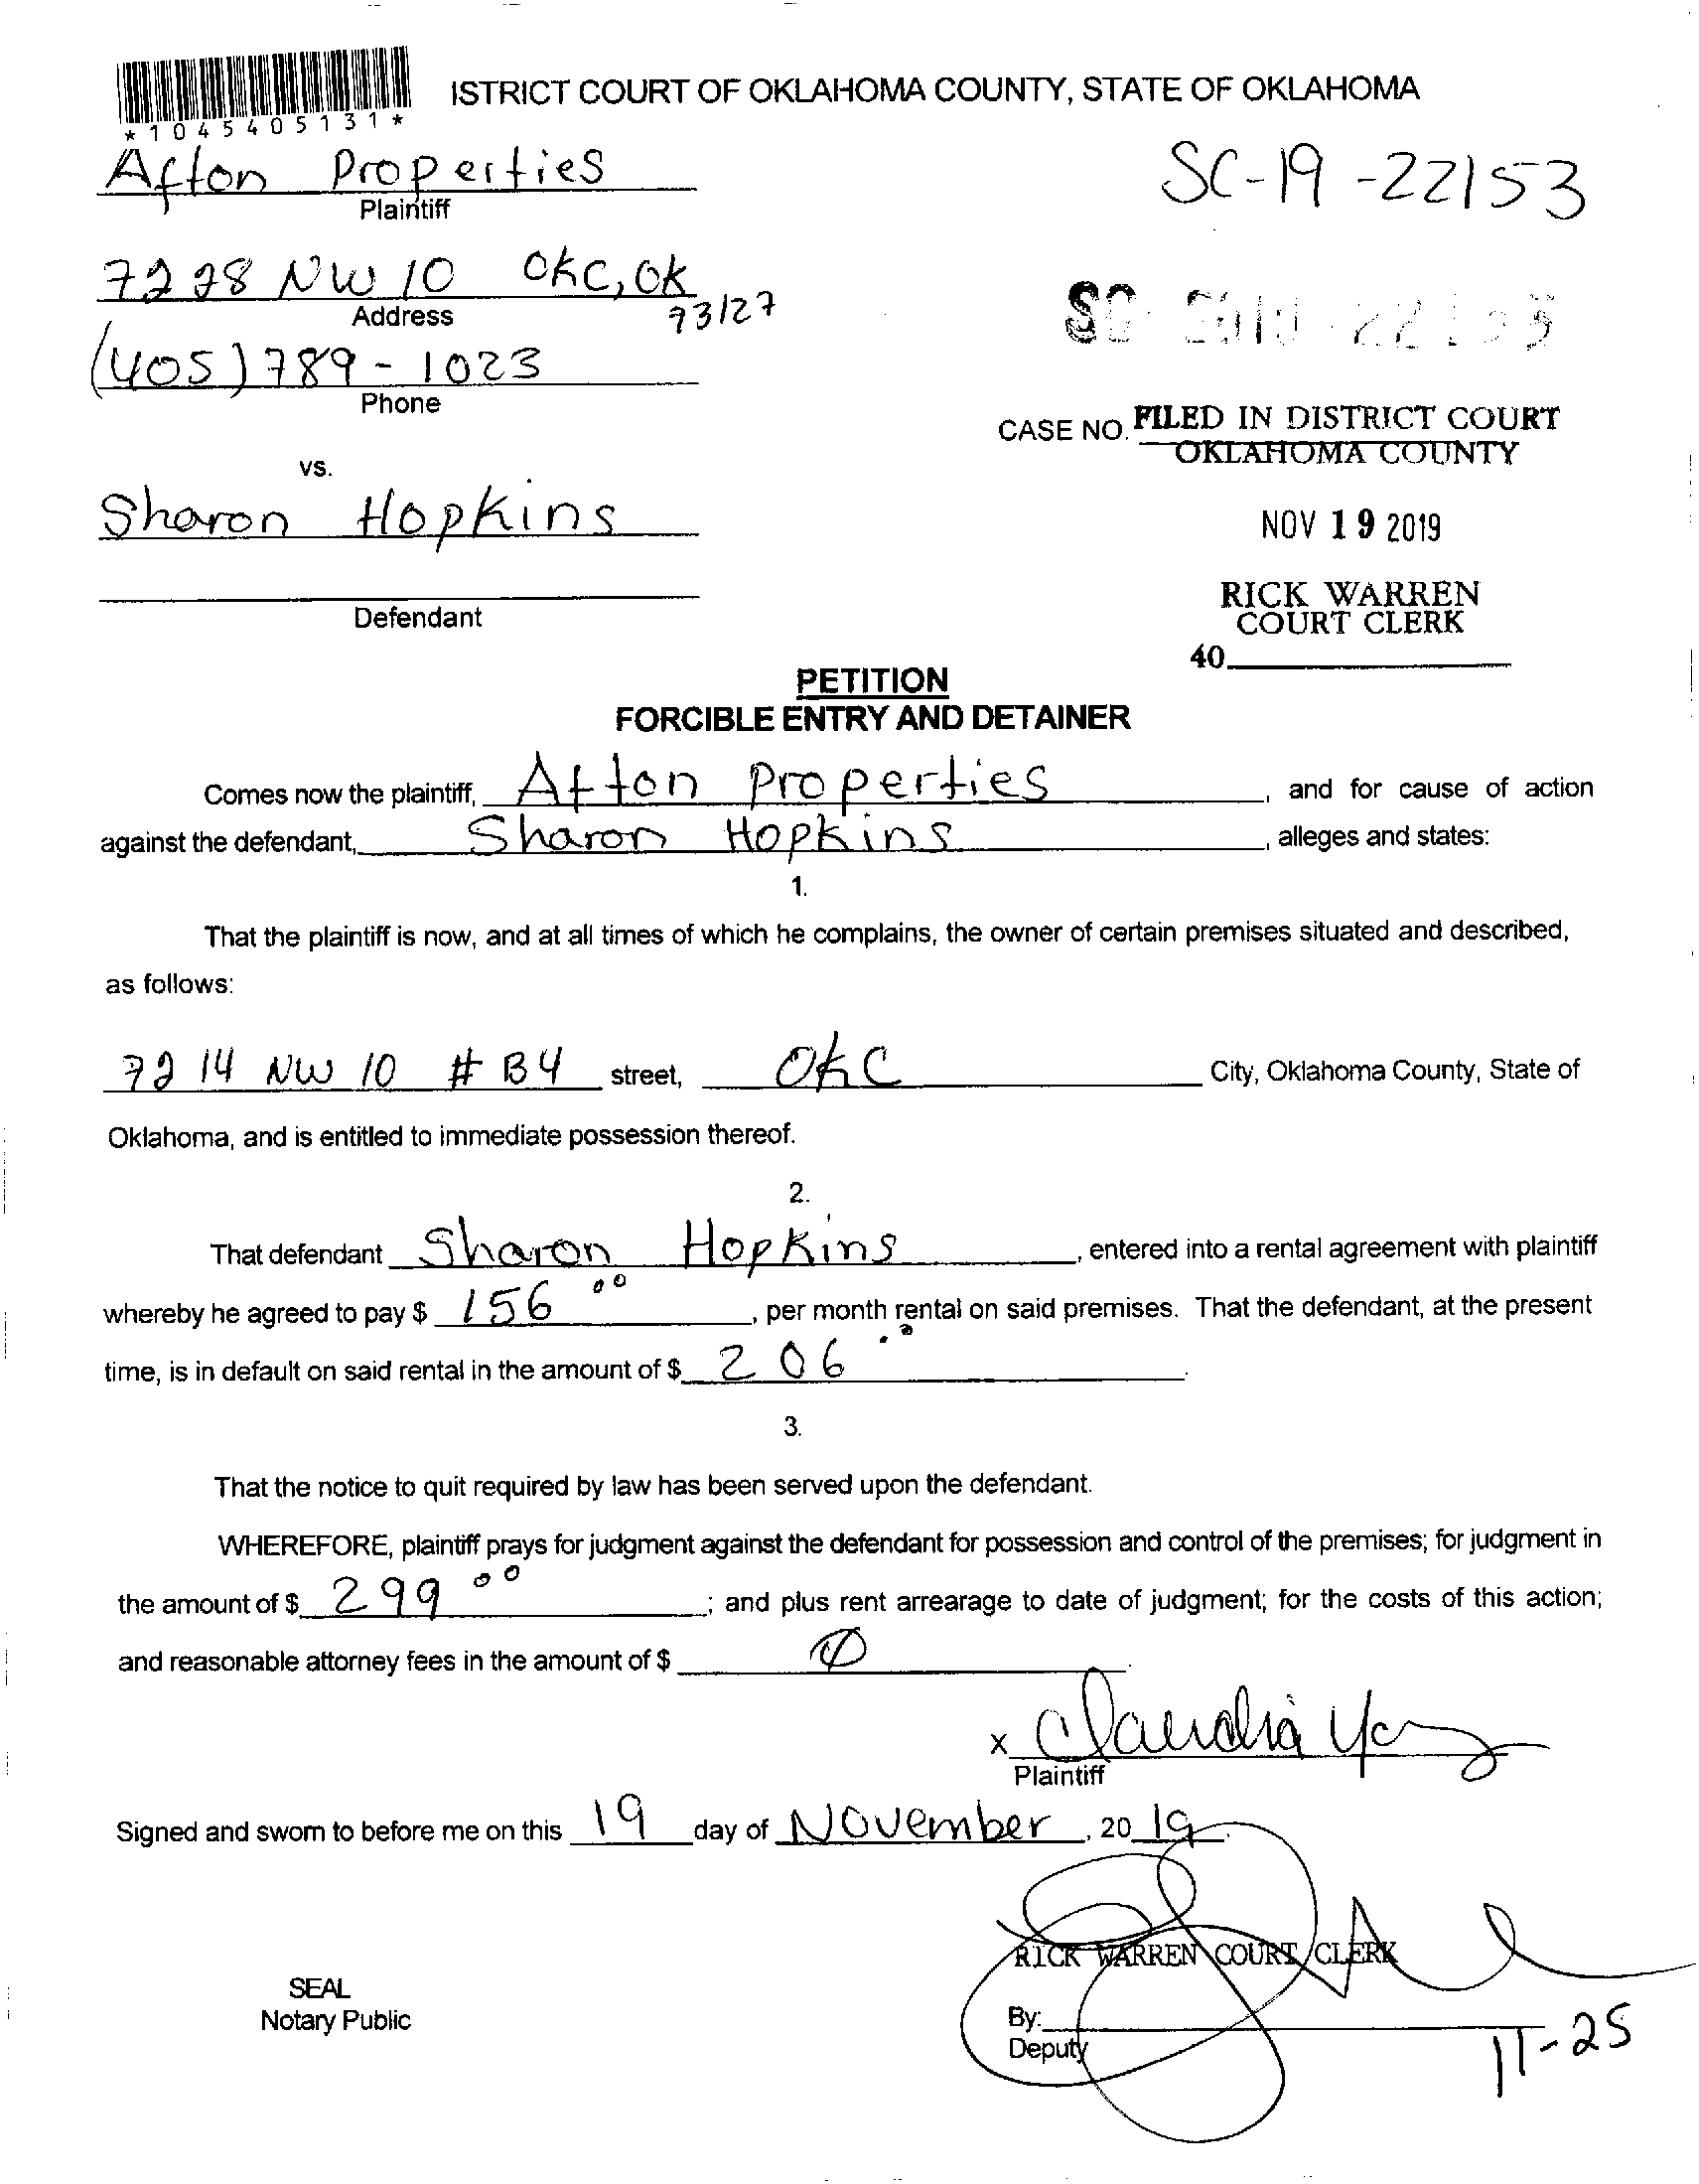 ISTRICT COURT OF OKLAHOMA COUNTY, STATE OF OKLAHOMA
*1045405131*
Afton Properties
Plaintiff
SC-19-22153
7228 NW 10 OKC, OK
73127
Address
(405) 789-1023
Phone
CASE NO. FILED IN DISTRICT COURT
OKLAHOMA COUNTY
vs.
Sharon Hopkins
NOV 19 2019
Defendant
RICK WARREN
COURT CLERK
40
PETITION
FORCIBLE ENTRY AND DETAINER
Comes now the plaintiff, Afton Properties, and for cause of action
against the defendant, Sharon Hopkins, alleges and states:
1.
That the plaintiff is now, and at all times of which he complains, the owner of certain premises situated and described,
as follows:
7214 NW 10 # B4 street, OKC City, Oklahoma County, State of
Oklahoma, and is entitled to immediate possession thereof.
2.
That defendant Sharon Hopkins, entered into a rental agreement with plaintiff
whereby he agreed to pay $ 156 00, per month rental on said premises. That the defendant, at the present
time, is in default on said rental in the amount of $ 206 00.
3.
That the notice to quit required by law has been served upon the defendant.
WHEREFORE, plaintiff prays for judgment against the defendant for possession and control of the premises; for judgment in
the amount of $ 299 00; and plus rent arrearage to date of judgment; for the costs of this action;
and reasonable attorney fees in the amount of $ 0.
x Claudia
Plaintiff
Signed and sworn to before me on this 19 day of November, 20 19.
RICK WARREN COURT CLERK
SEAL
Notary Public
By:
Deputy
11-25